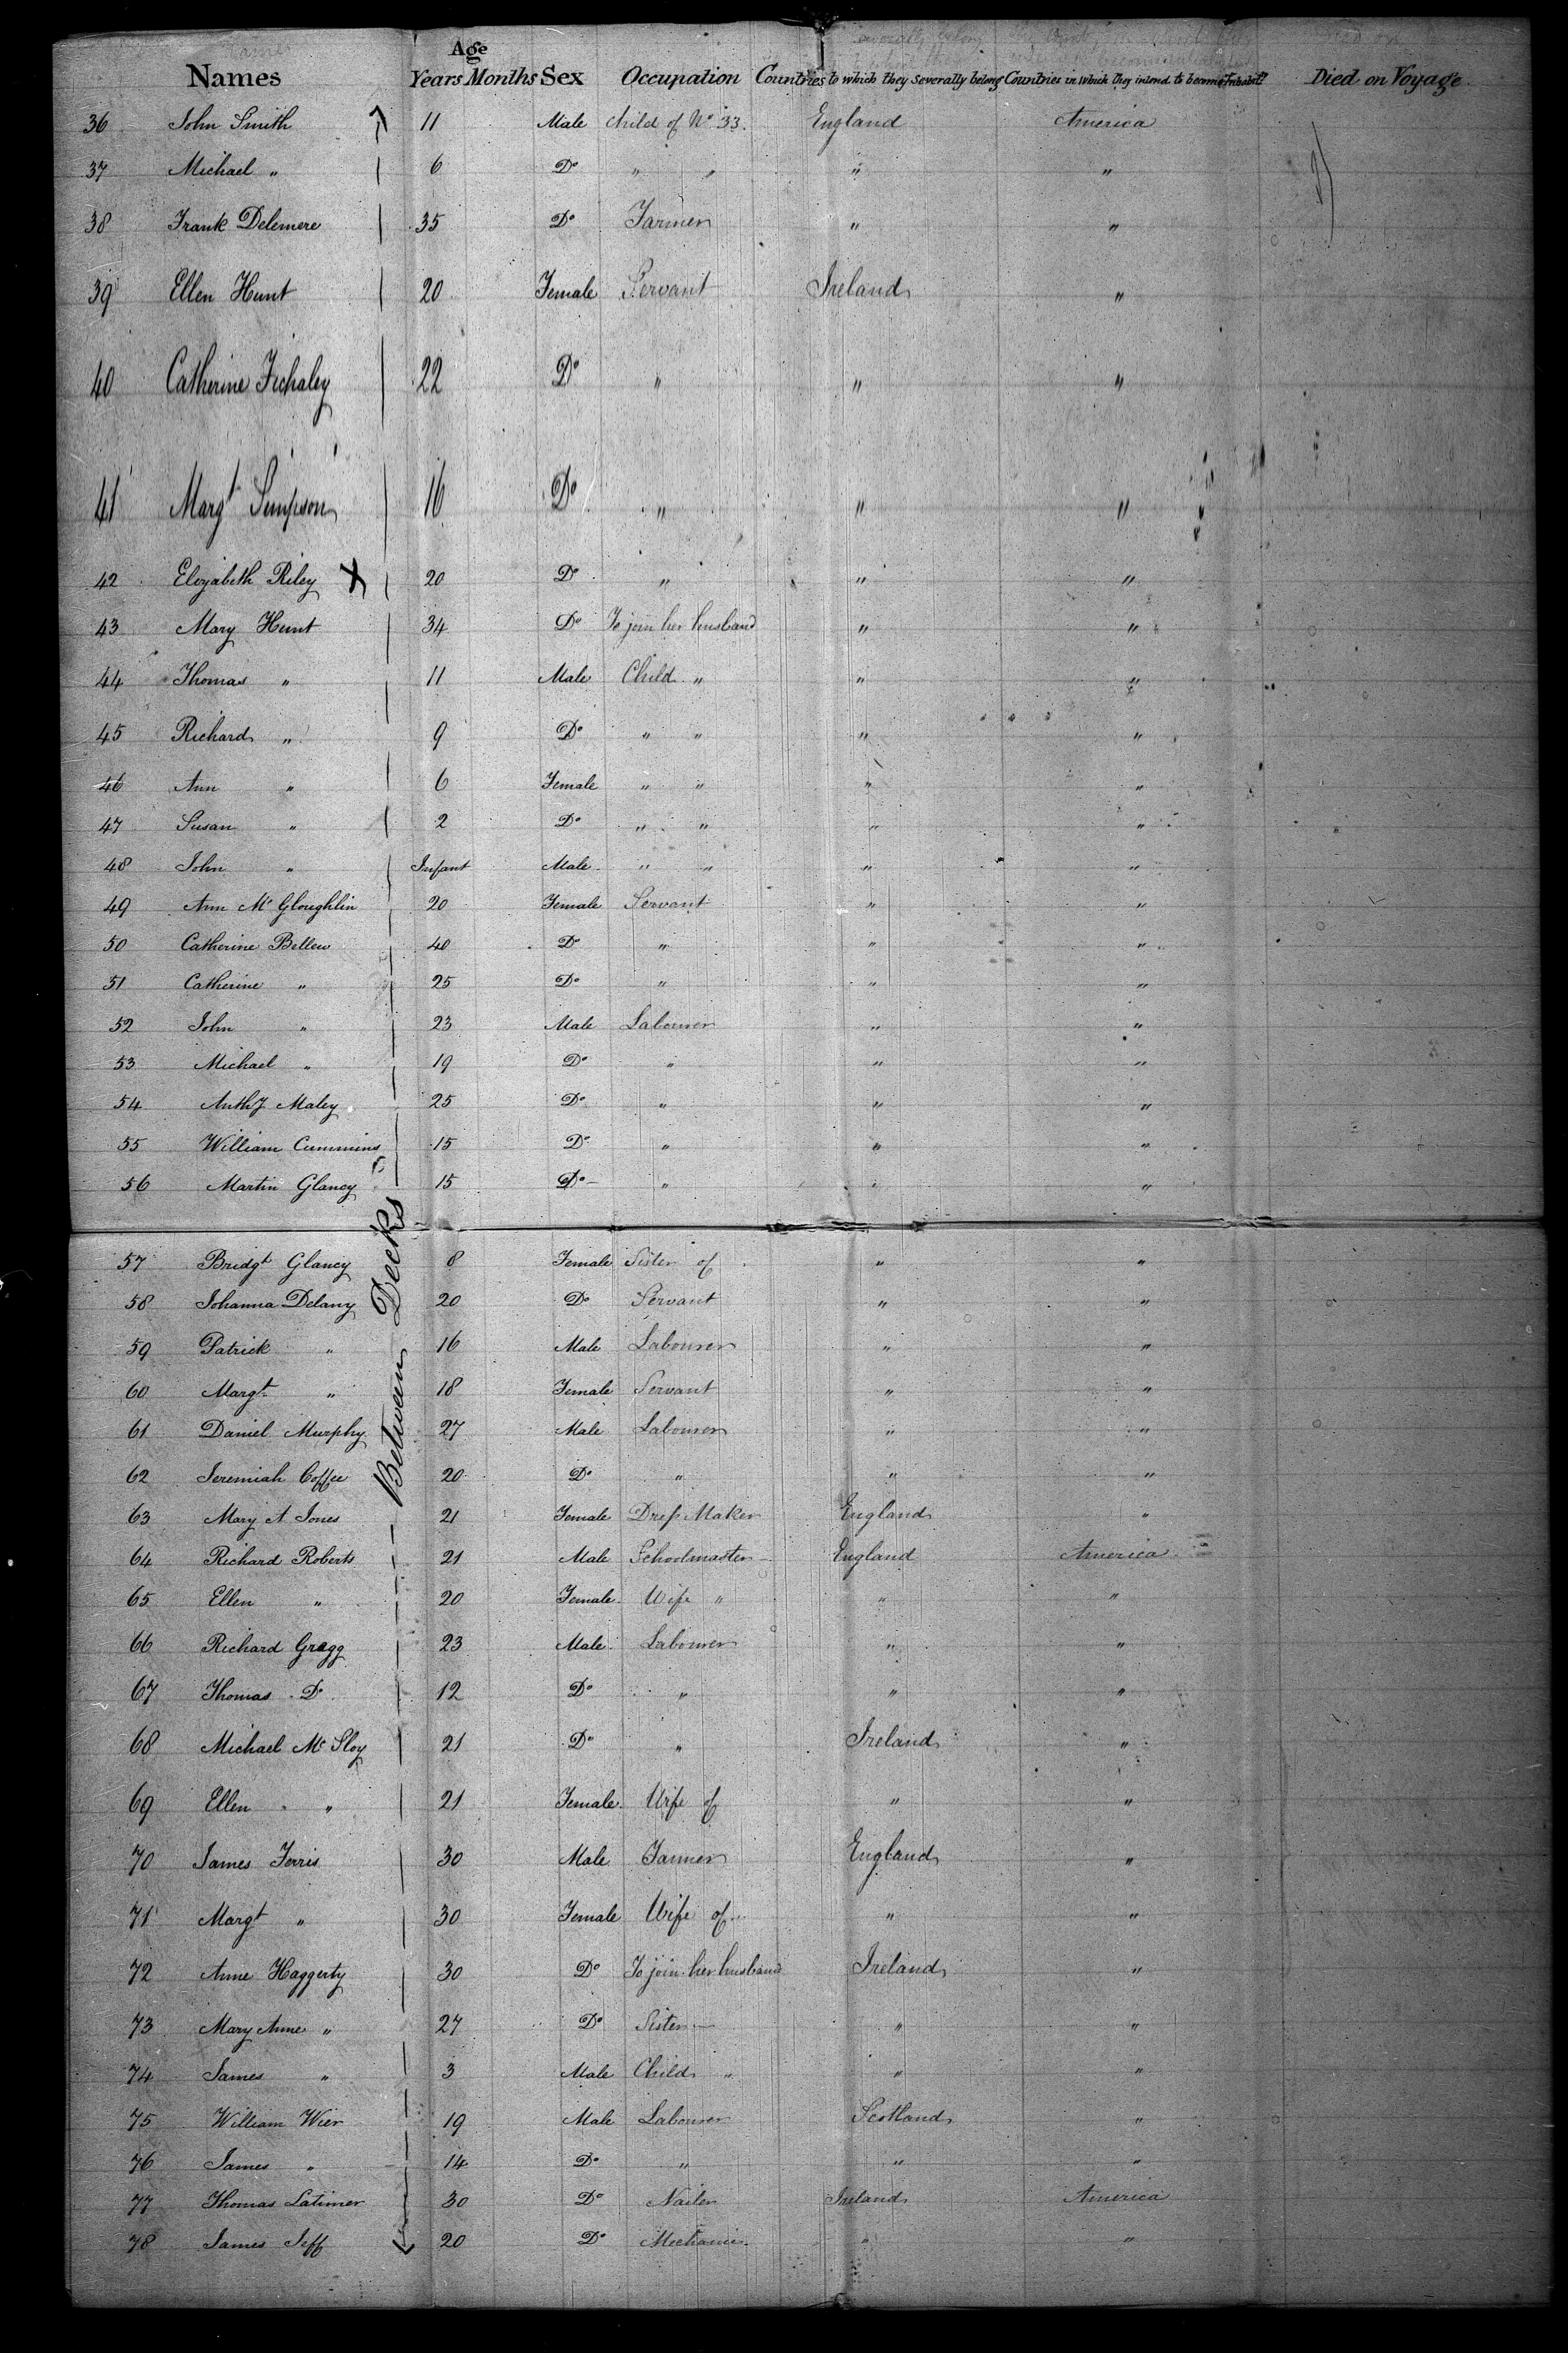 Age
Names Years Months Sex Occupation Countries to which they severally belong Countries in which they intend to become Inhabitts Died on Voyage
36 John Smith 11 Male Child of No 33. England America
37 Michael " 6 Do " " " "
38 Frank Delemere 35 Do Farmer " "
39 Ellen Hunt 20 Female Servant Ireland "
40 Catherine 22 Do " " "
41 Margt Simpson 16 Do " " "
42 Elizabeth Riley X 20 Do " " "
43 Mary Hunt 34 Do To join her husband " "
44 Thomas " 11 Male Child " " "
45 Richard " 9 Do " " " "
46 Ann " 6 Female " " " "
47 Susan " 2 Do " " " "
48 John " Infant Male " " " "
49 Ann Mc Gloughlin 20 Female Servant " "
50 Catherine Bellew 40 Do " " "
51 Catherine " 25 Do " " "
52 John " 23 Male Labourer " "
53 Michael " 19 Do " " "
54 Anthy Maley 25 Do " " "
55 William Cummins 15 Do " " "
56 Martin Glancy 15 Do " " "
Between Decks
57 Bridgt Glancy 8 Female Sister of " "
58 Johanna Delany 20 Do Servant " "
59 Patrick " 16 Male Labourer " "
60 Margt " 18 Female Servant " "
61 Daniel Murphy 27 Male Labourer " "
62 Jeremiah Coffee 20 Do " " "
63 Mary A Jones 21 Female Dress Maker England "
64 Richard Roberts 21 Male Schoolmaster England America
65 Ellen " 20 Female Wife " " "
66 Richard Gragg 23 Male Labourer " "
67 Thomas Do 12 Do " " "
68 Michael Mc Sloy 21 Do " Ireland "
69 Ellen " 21 Female Wife of " "
70 James Ferris 30 Male Farmer England "
71 Margt " 30 Female Wife of " "
72 Anne Haggerty 30 Do To join her husband Ireland "
73 Mary Anne " 27 Do Sister " "
74 James " 3 Male Child " " "
75 William Wier 19 Male Labourer Scotland "
76 James " 14 Do " " "
77 Thomas Latimer 30 Do Nailer Ireland America
78 James Jeff 20 Do Mechanic " "